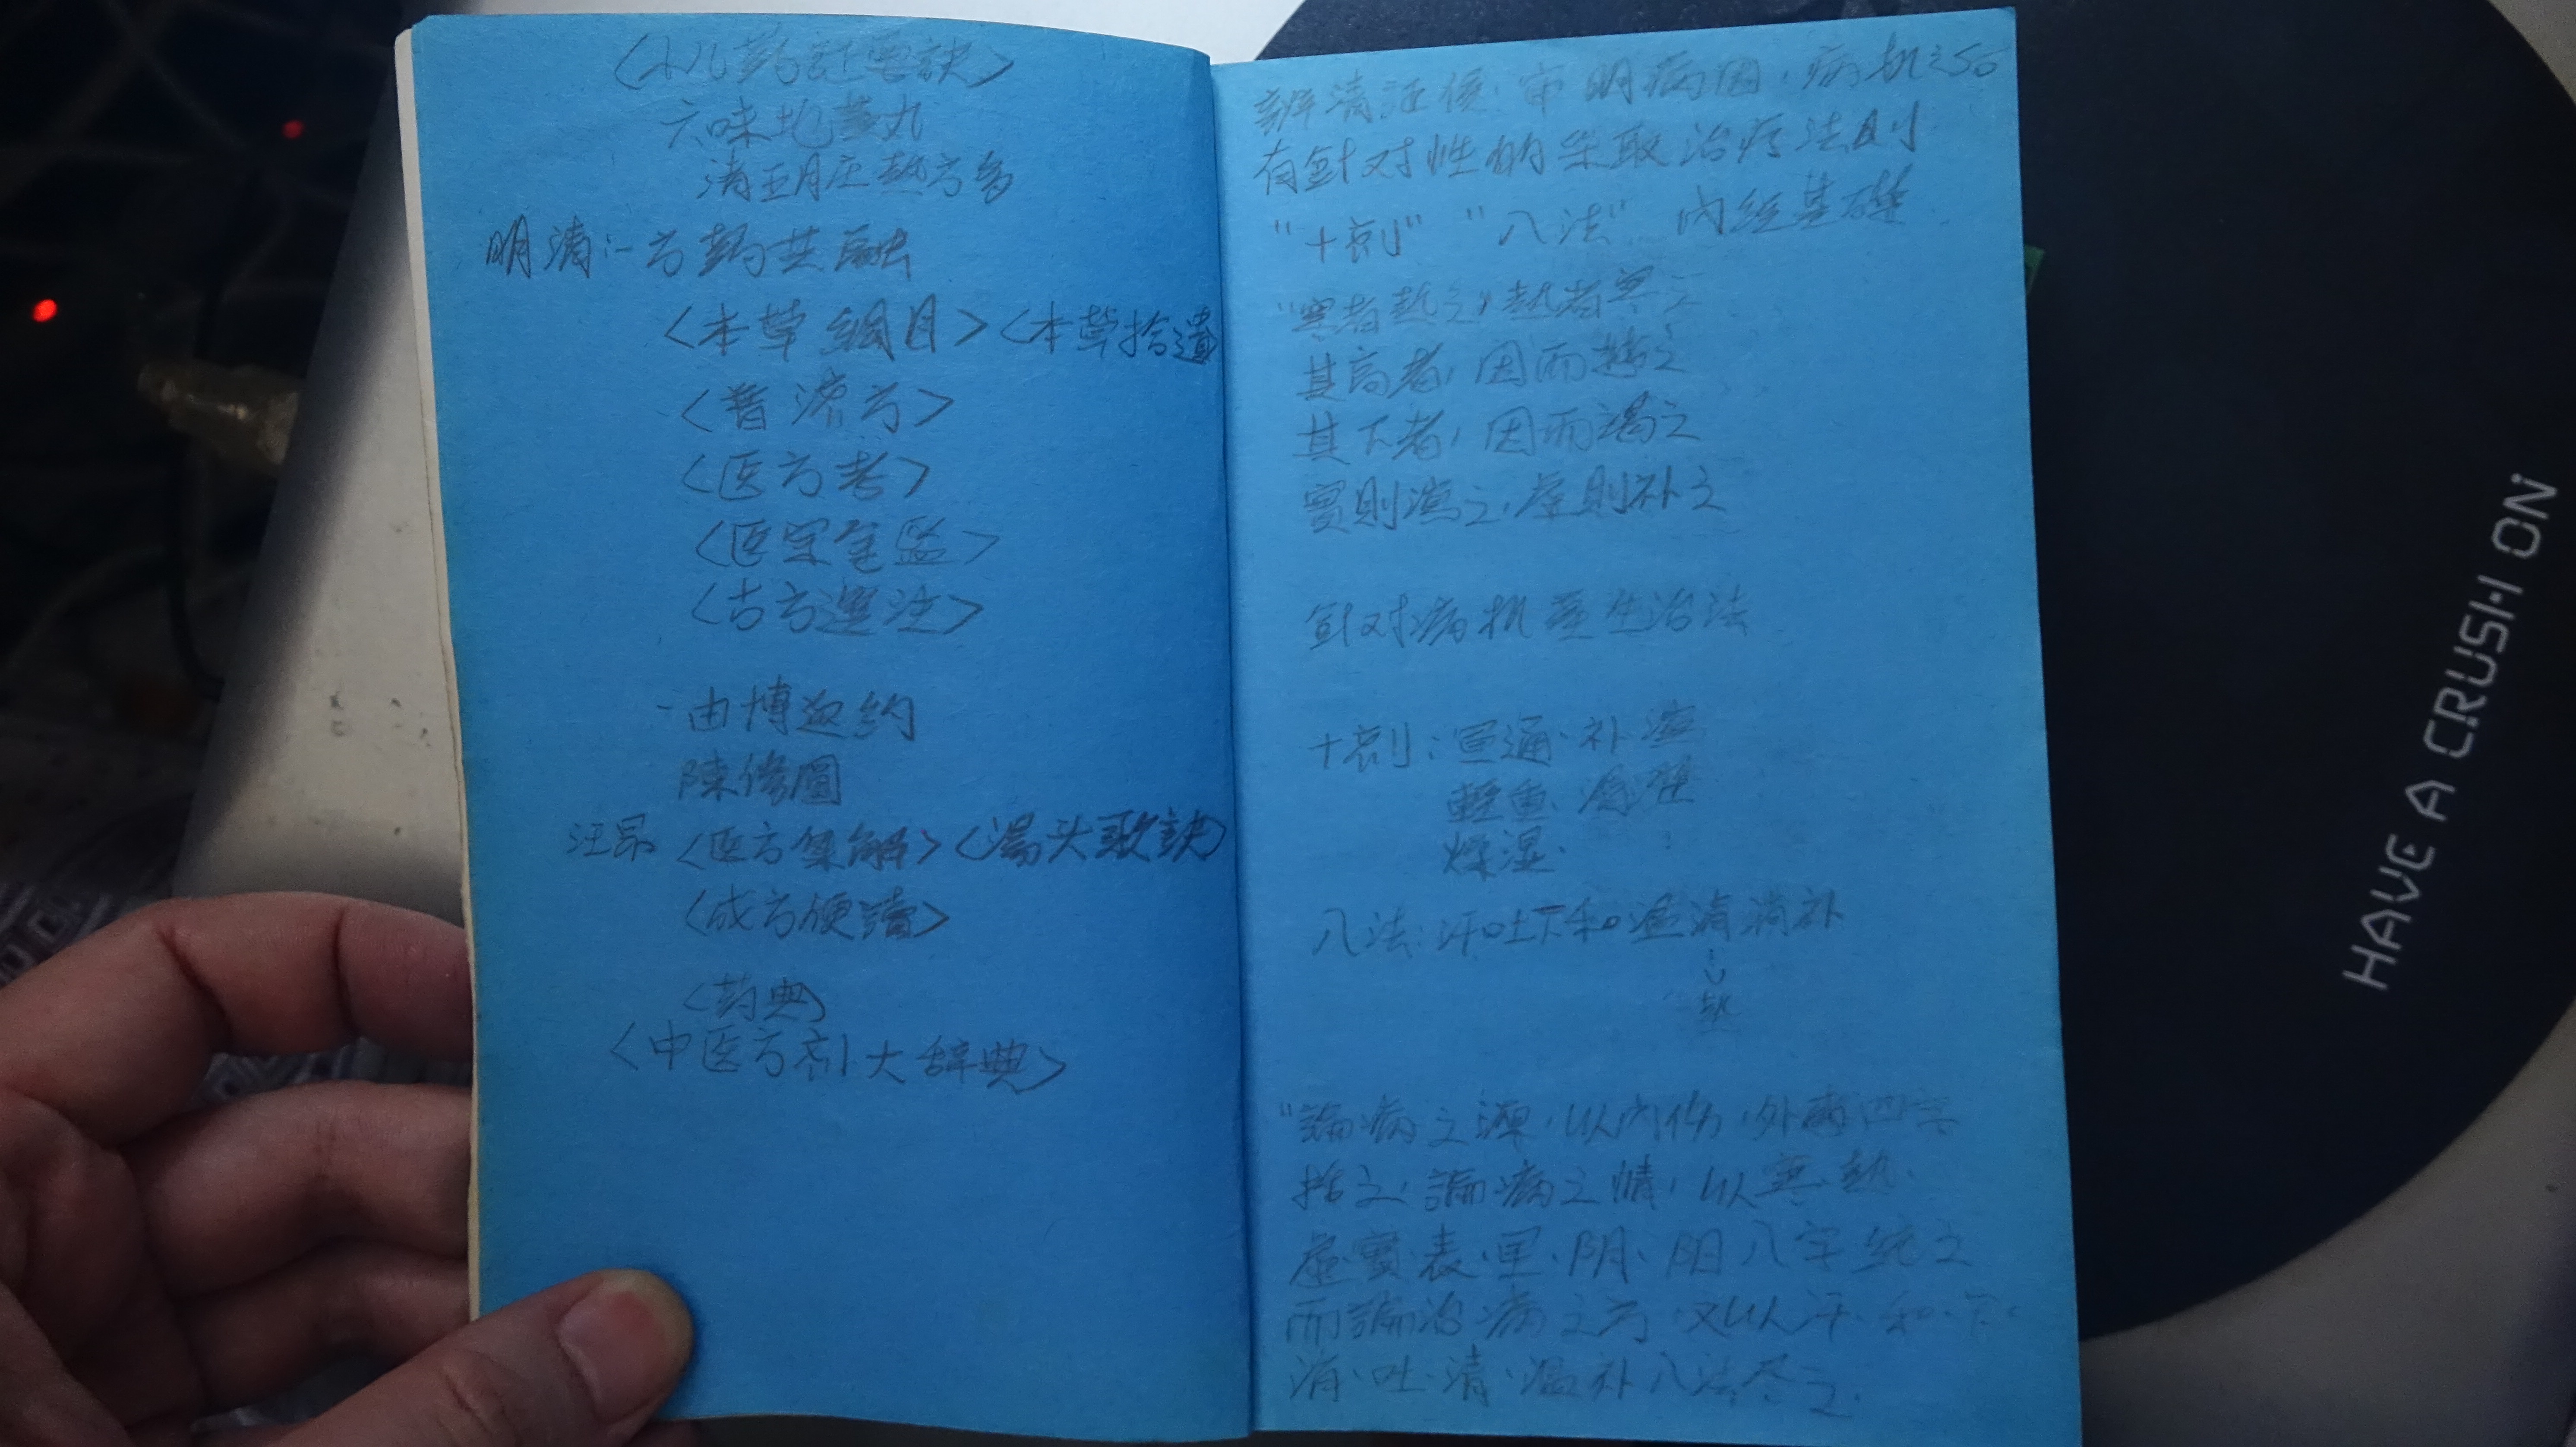 <小儿药証要訣>
六味地黄丸
清五月庄热方多
明清:-方药共融
<本草綱目><本草拾遺
<普濟方>
<医方考>
<医宗金監>
<古方選注>
-由博返约
陳修園
汪昂 <医方集解><湯头歌訣>
<成方便讀>
<药典>
<中医方剂大辞典>
辨清証侯·审明病因,病机之后
有針对性的采取治疗法則
"十剤""八法" 内经基礎
"寒者热之,热者寒之
其高者,因而越之
其下者,因而竭之
實則瀉之,虛則补之
針对病机產生治法
十剤:宣通·补瀉
輕重·滑
燥湿·
八法:汗吐下和温清消补
热
"論病之源,以内伤,外感四字
括之,論病之情,以寒·热·
虛·實·表·里·阴·阳八字統之
而論治病之方,又以汗·和·下·
消·吐·清·温补八法尽之.
HAVE A CRUSH ON